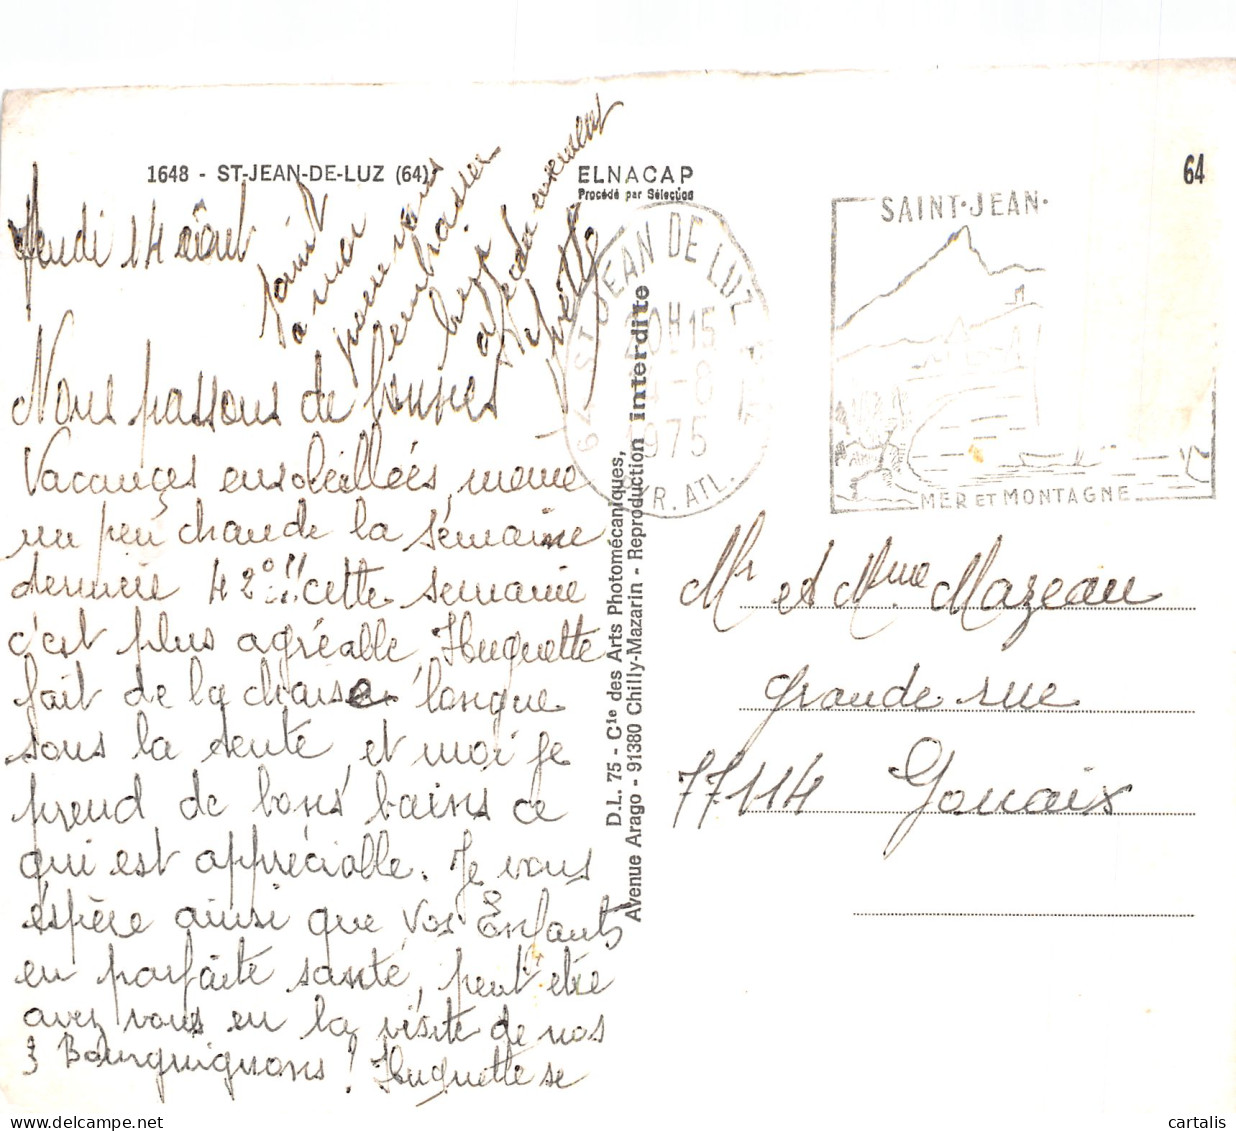 1648 - ST-JEAN-DE-LUZ (64)
ELNACAP
Procédé par Sélection
64
Jeudi 14 août
Nous passons de bonnes
Vacances ensoleillées, meme
un peu chaude la semaine
dernière 42°!! cette semaine
c'est plus agréable, Huguette
fait de la chaise longue
sous la tente, et moi je
prend de bons bains ce
qui est appréciable. Je vous
espère ainsi que vos Enfants
en parfaite santé, peut etre
avez vous eu la visite de nos
3 Bourguignons! Huguette se
joint
a moi
pour vous
embrasser
bien
ST JEAN DE LUZ
20H15
-8
1975
64 PYR. ATL.
SAINT·JEAN·
MER ET MONTAGNE
D.L. 75 - Cie des Arts Photomécaniques,
Avenue Arago - 91380 Chilly-Mazarin - Reproduction interdite
Mr et Mme Mazeau
grande rue
77114 Gouaix
cartalis